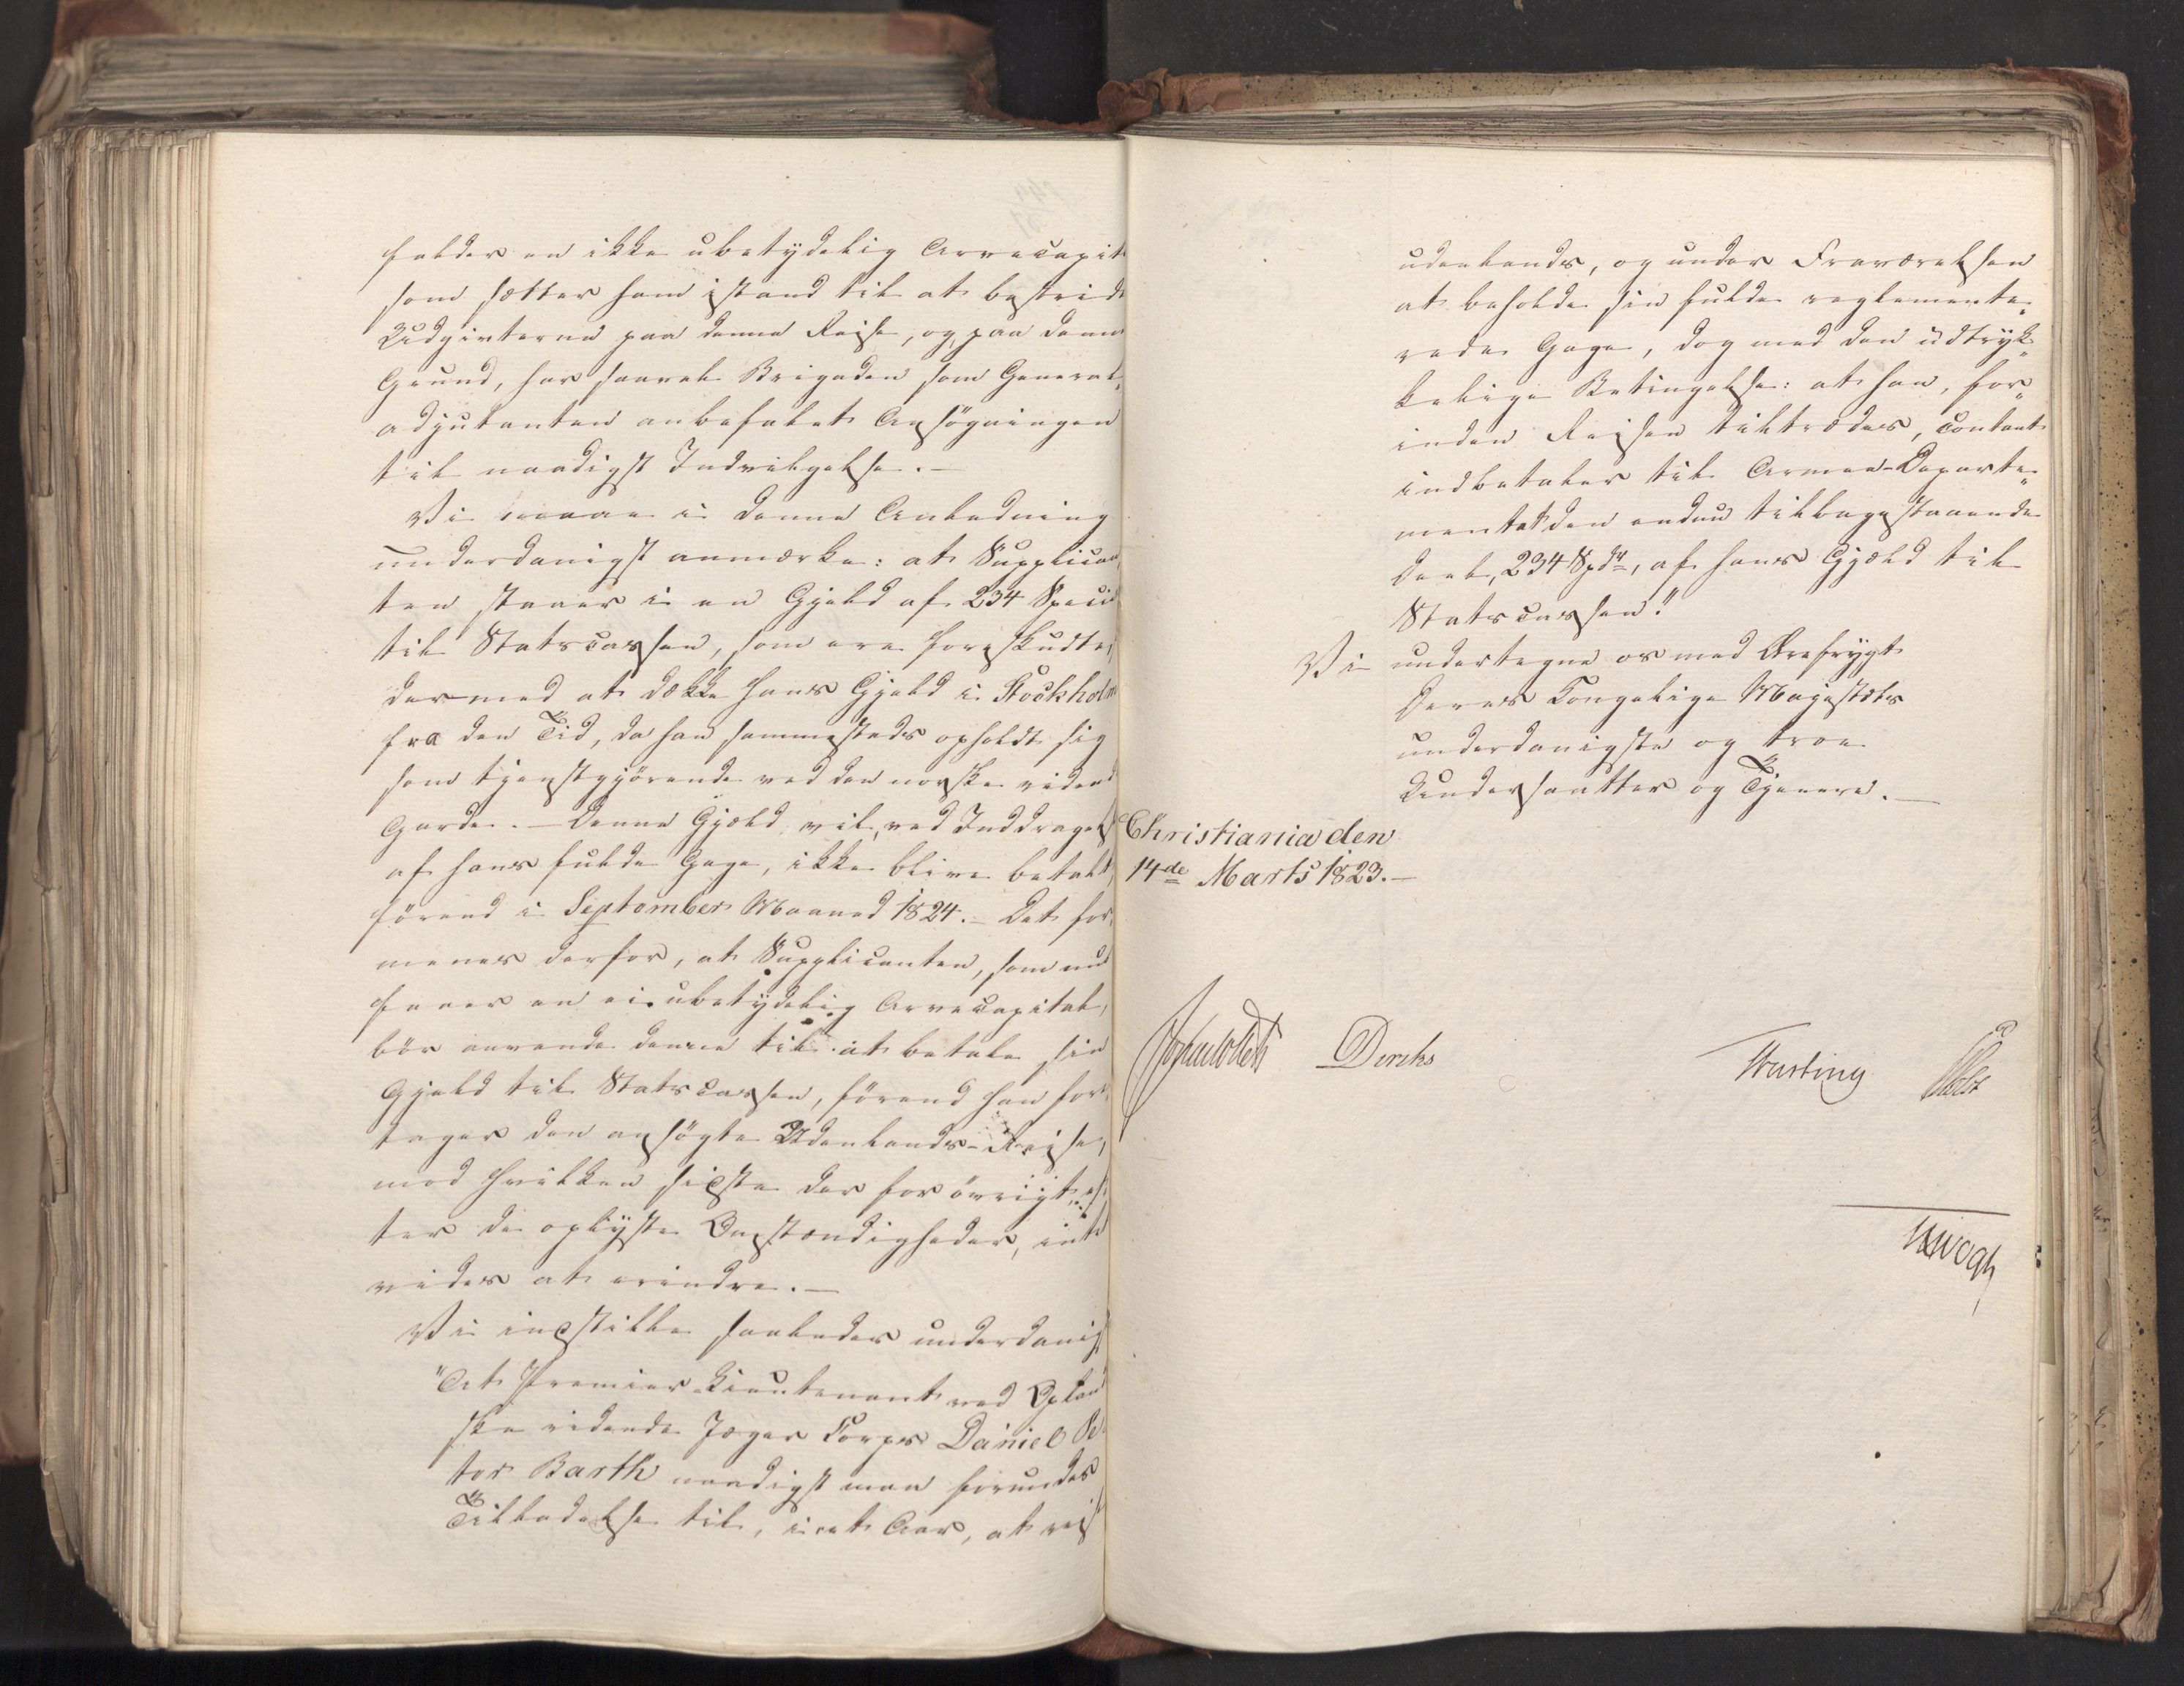 falder en ikke ubetydelig Arvecapit
som sætter ham istand til at bestride
Udgivterne paa denne Reise, og paa denne
Grund, har saavel Brigaden som General-
adjutanten anbefalet Ansøgningen
til naadigst Indvilgelse. —
Vi maae i denne Anledning
underdanigst anmærke: at Supplican
ten staaer i en Gjeld af 234 Specid
til Statscassen, som ere forskudte,
dermed at dække hans Gjeld i Stockholm
fra den Tid, da han sammesteds opholdt sig
som tjenstgjörende ved den norske ridend
Garde. — Denne Gjæld vil, ved Inddragels
af hans fulde Gage, ikke blive betalt
förend i September Maaned 1824. — Det for
menes derfor, at Supplicanten, som nu
faaer en ei ubetydelig Arvecapital,
bör anvende denne til at betale sin
Gjeld til Statscassen, förend han fore
tager den ansögte Udenlands-Reise,
mod hvilken sidste der for övrigt, ef
ter de oplyste Omstændigheder, intet
vides at erindre. —
Vi indstille saaledes underdanigst
"At Premier Lieutenant ved Oplan
ske ridende Jæger Corps Daniel Pe
ter Barth naadigst maa forundes
Tilladelse til, i et Aar, at reise
udenlands, og under Fraværelsen
at beholde sin fulde reglemente-
rede Gage, dog med den udtryk-
kelige Betingelse: at han, for-
inden Reisen tiltrædes, contant
indbetaler til Armee-Departe-
mentet den endnu tilbagestaaende
Deel, 234 Spdr, af hans Gjæld til
Statscassen."
Vi undertegne os med Ærefrygt
Deres Kongelige Majestæts
underdanigste og troe
Undersaatter og Tjenere. —
Christiania den
14de Marts 1823. —
JCollett Diriks Krebs
Hwogh